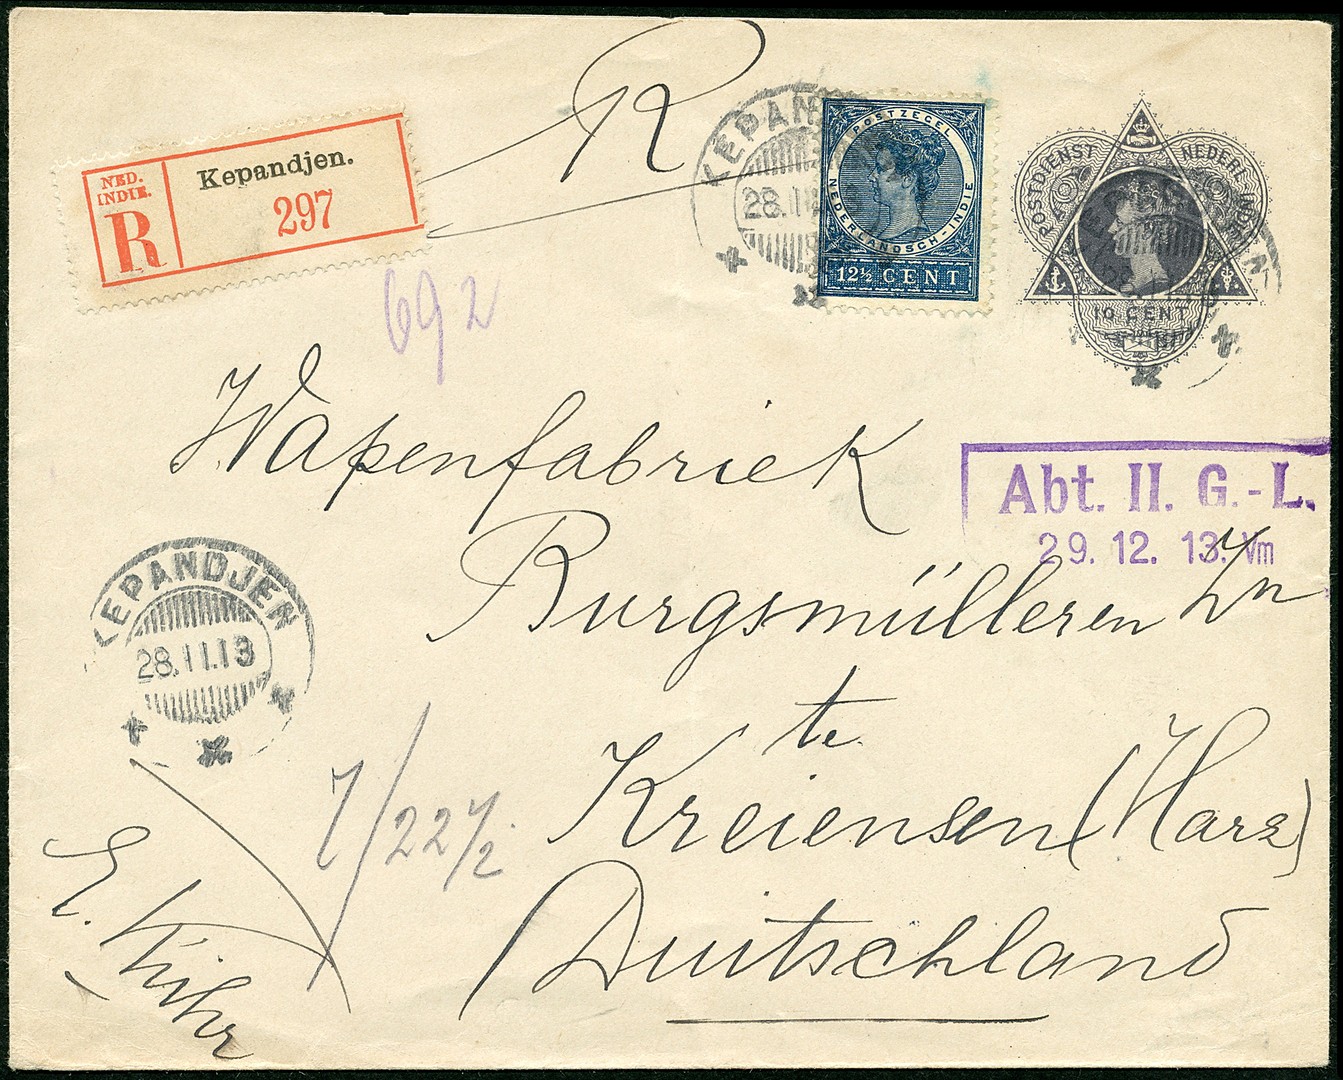 R
NED.
INDIE.
R
Kepandjen.
297
KEPANDJEN
28.11.13
POSTZEGEL
NEDERLANDSCH-INDIE
12½ CENT
POSTDIENST NEDERL INDIE
10 CENT
692
Wapenfabriek
Abt. II. G.-L.
29. 12. 13. Vm
Burgsmülleren Zn
te
KEPANDJEN
28.11.13
Kreiensen (Harz)
7/22½
Duitschland
E. Kühr